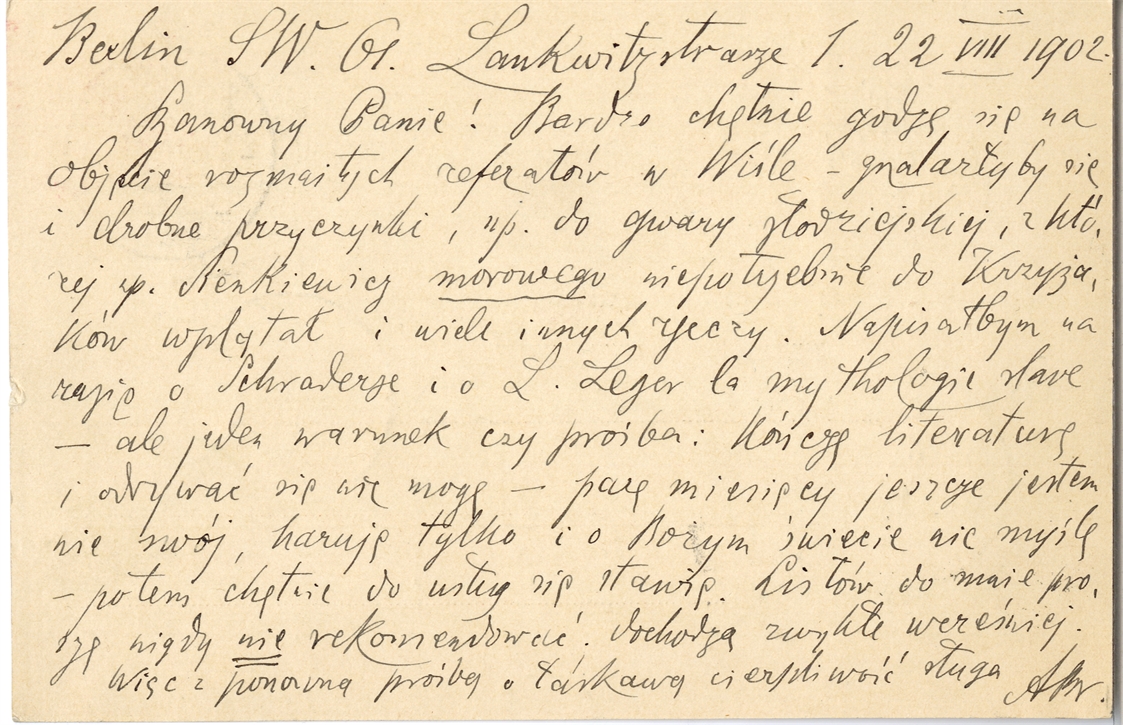 Berlin SW. 61. Lankwitzstrasze 1. 22 VIII 1902.
Szanowny Panie! Bardzo chętnie godzę się na
objęcie rozmaitych referatów w Wiśle – znalazłyby się
i drobne przyczynki, np. do gwary złodziejskiej, z któ,
rej np. Sienkiewicz morowego niepotrzebnie do Krzyża,
ków wplątał i wiele innych rzeczy. Napisałbym na
razie o Schraderze i o L. Leger la mythologie slave
– ale jeden warunek czy prośba: kończę literaturę
i odrywać się nie mogę – parę miesięcy jeszcze jestem
nie swój, haruję tylko i o Bożym świecie nic myślę
– potem chętnie do usług się stawię. Listów do mnie pro,
szę nigdy nie rekomendować. dochodzą zwykłe wcześniej.
Więc z ponowną prośbą o łaskawą cierpliwość sługa ABr.